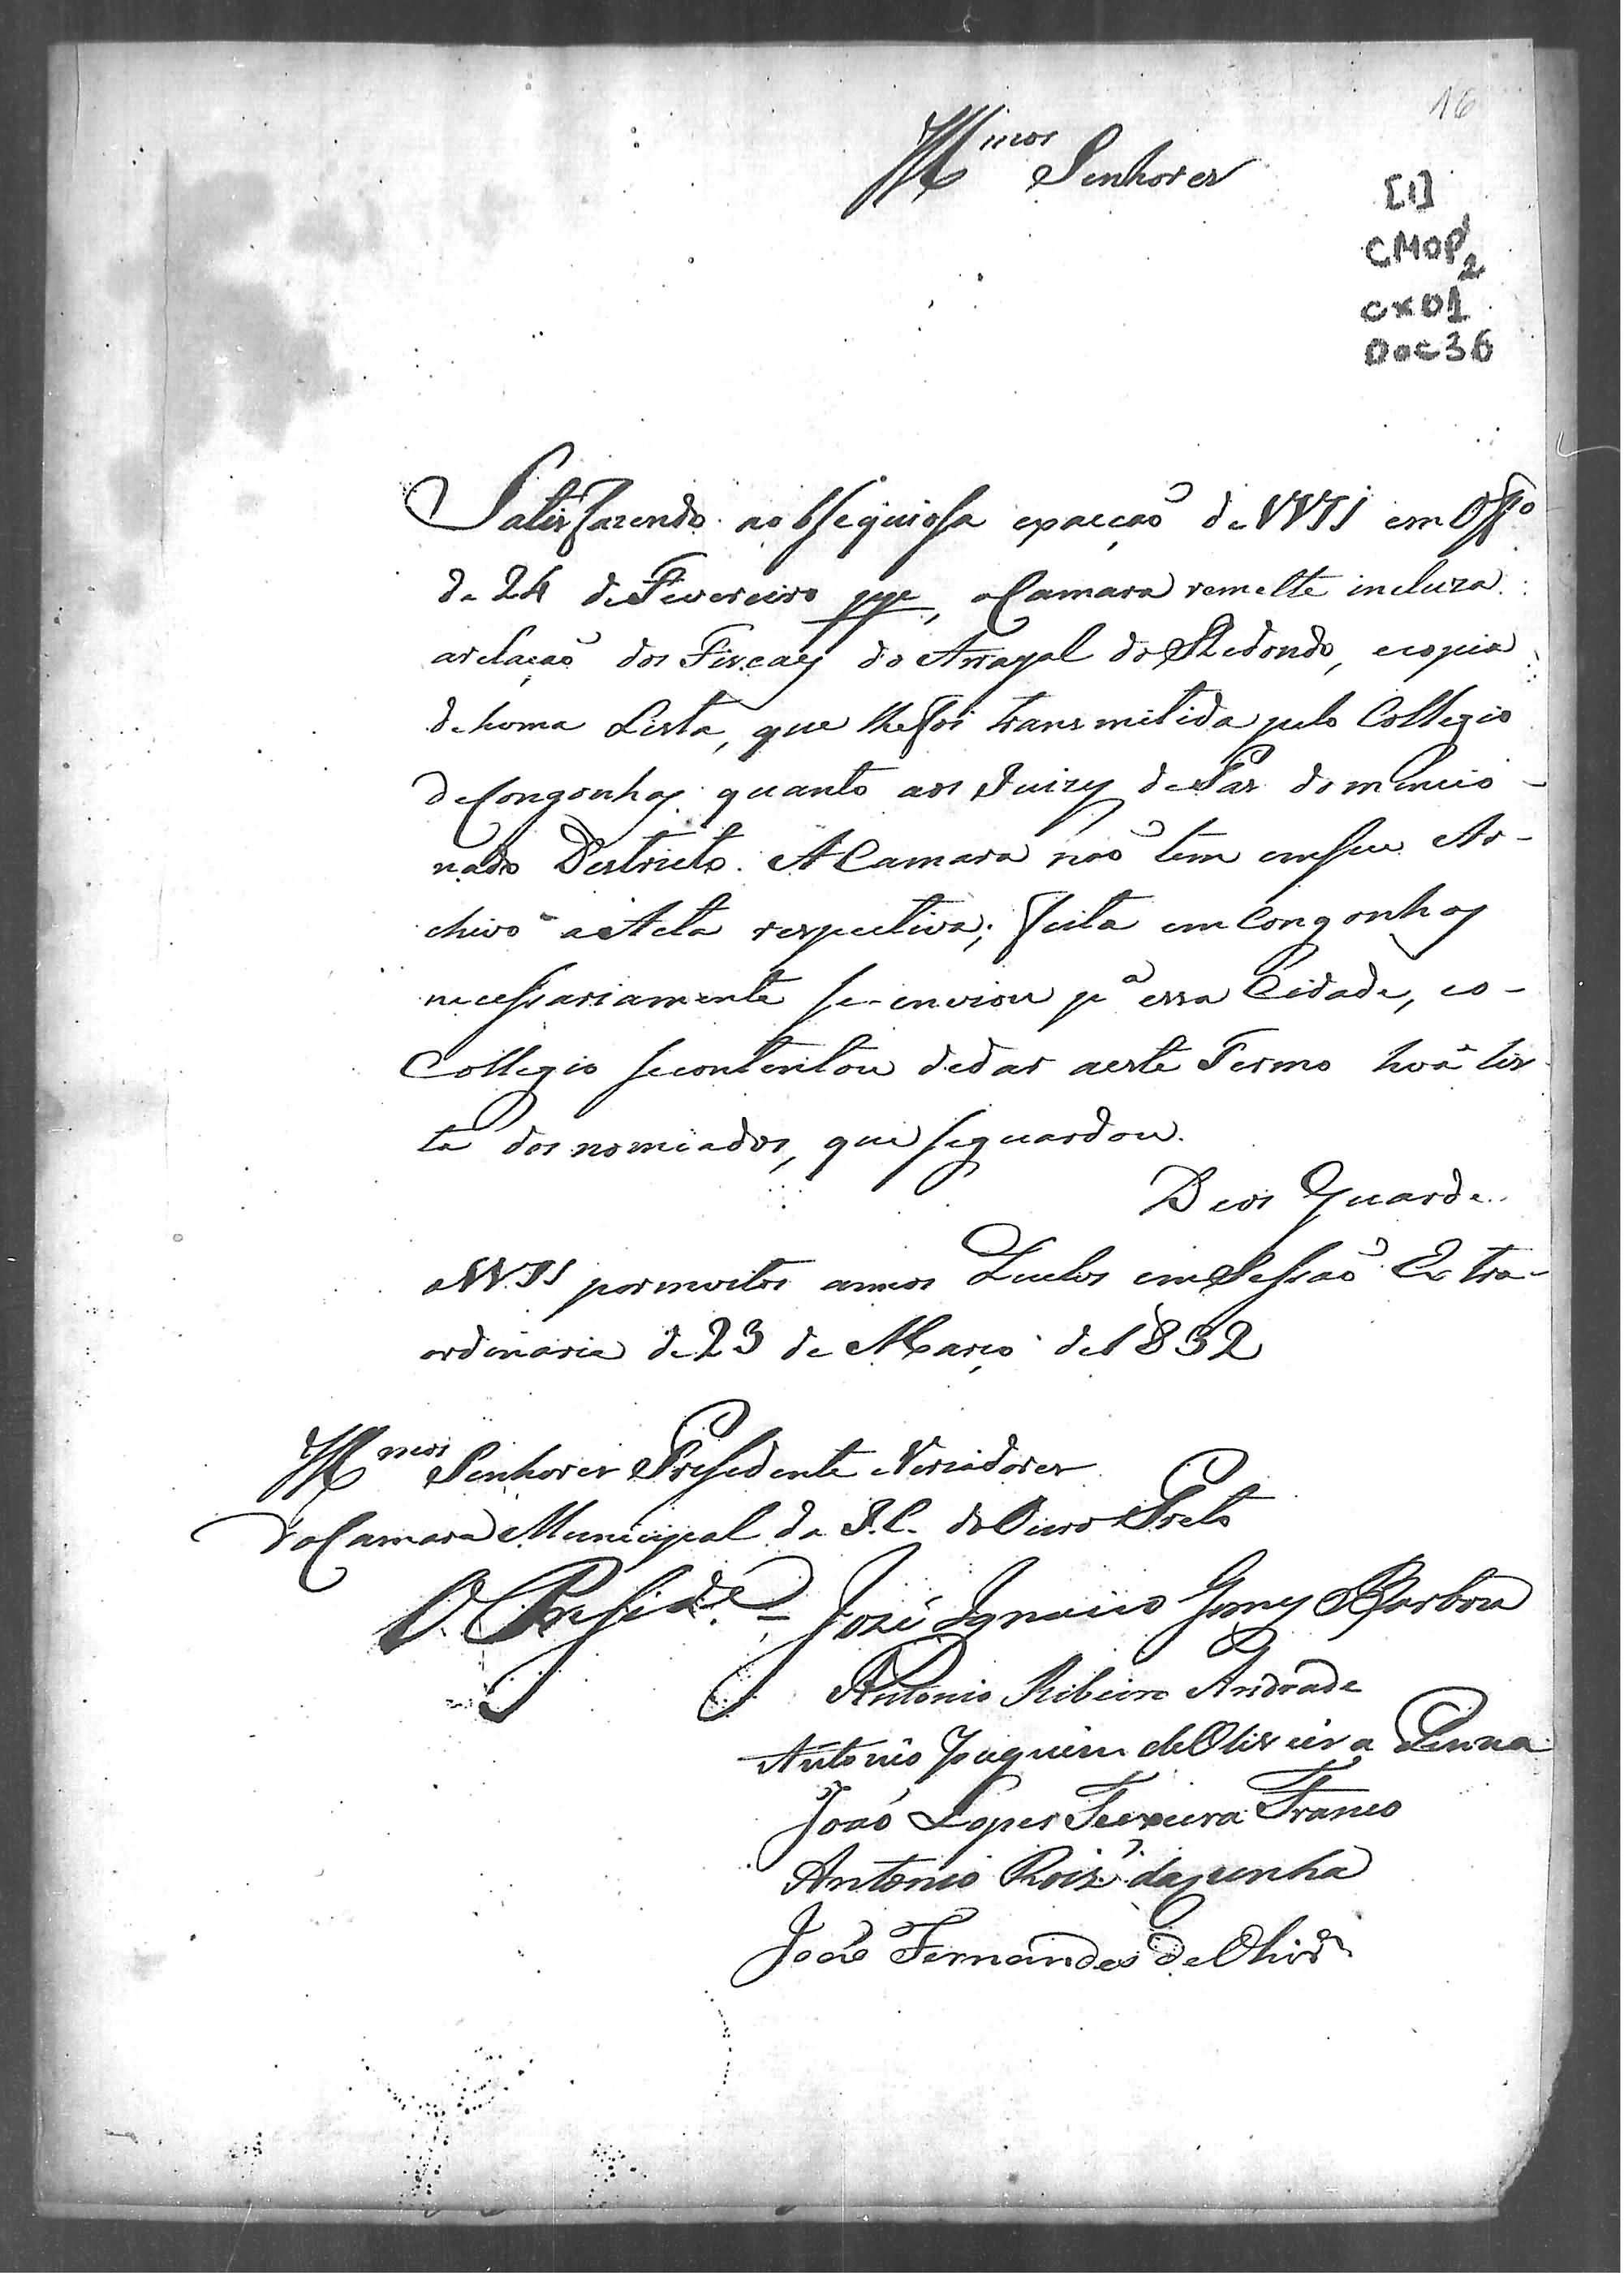 16
Illmos Senhores
[1]
CMOP 1/2
cx 01
Doc 36
Satisfazendo a obsequiosa exacçaõ de VVSS em Offo
de 24 de Fevereiro pp, a Camara remette incluza
a relaçaõ dos Fiscaes do Arrayal do Redondo, e copia
de huma Lista, que lhe foi transmitida pelo Collegio
de Congonhas quanto aos Juizes de Paz do mencio-
nado Destricto. A Camara naõ tem em seu Ar-
chivo a Acta respectiva; feita em Congonhas
necessariamente se enviou pa essa Cidade, e o-
Collegio se contentou de dar a este Termo huã lis
ta dos nomiados, que se guardou.
Deos Guarde
a VVSS por muitos annos Queluz em Sessaõ Extra-
ordinaria de 23 de Março de 1832
Illmos Senhores Presidente e Veriadores
da Camara Municipal da I.C. do Ouro Preto
O Preside. José Ignacio Gomes Barboza
Antonio Ribeiro Andrade
Antonio Joaquim de Oliveira Penna
Joaõ Lopes Teixeira Franco
Antonio Roiz da Cunha
Joaõ Fernandes de Olivra